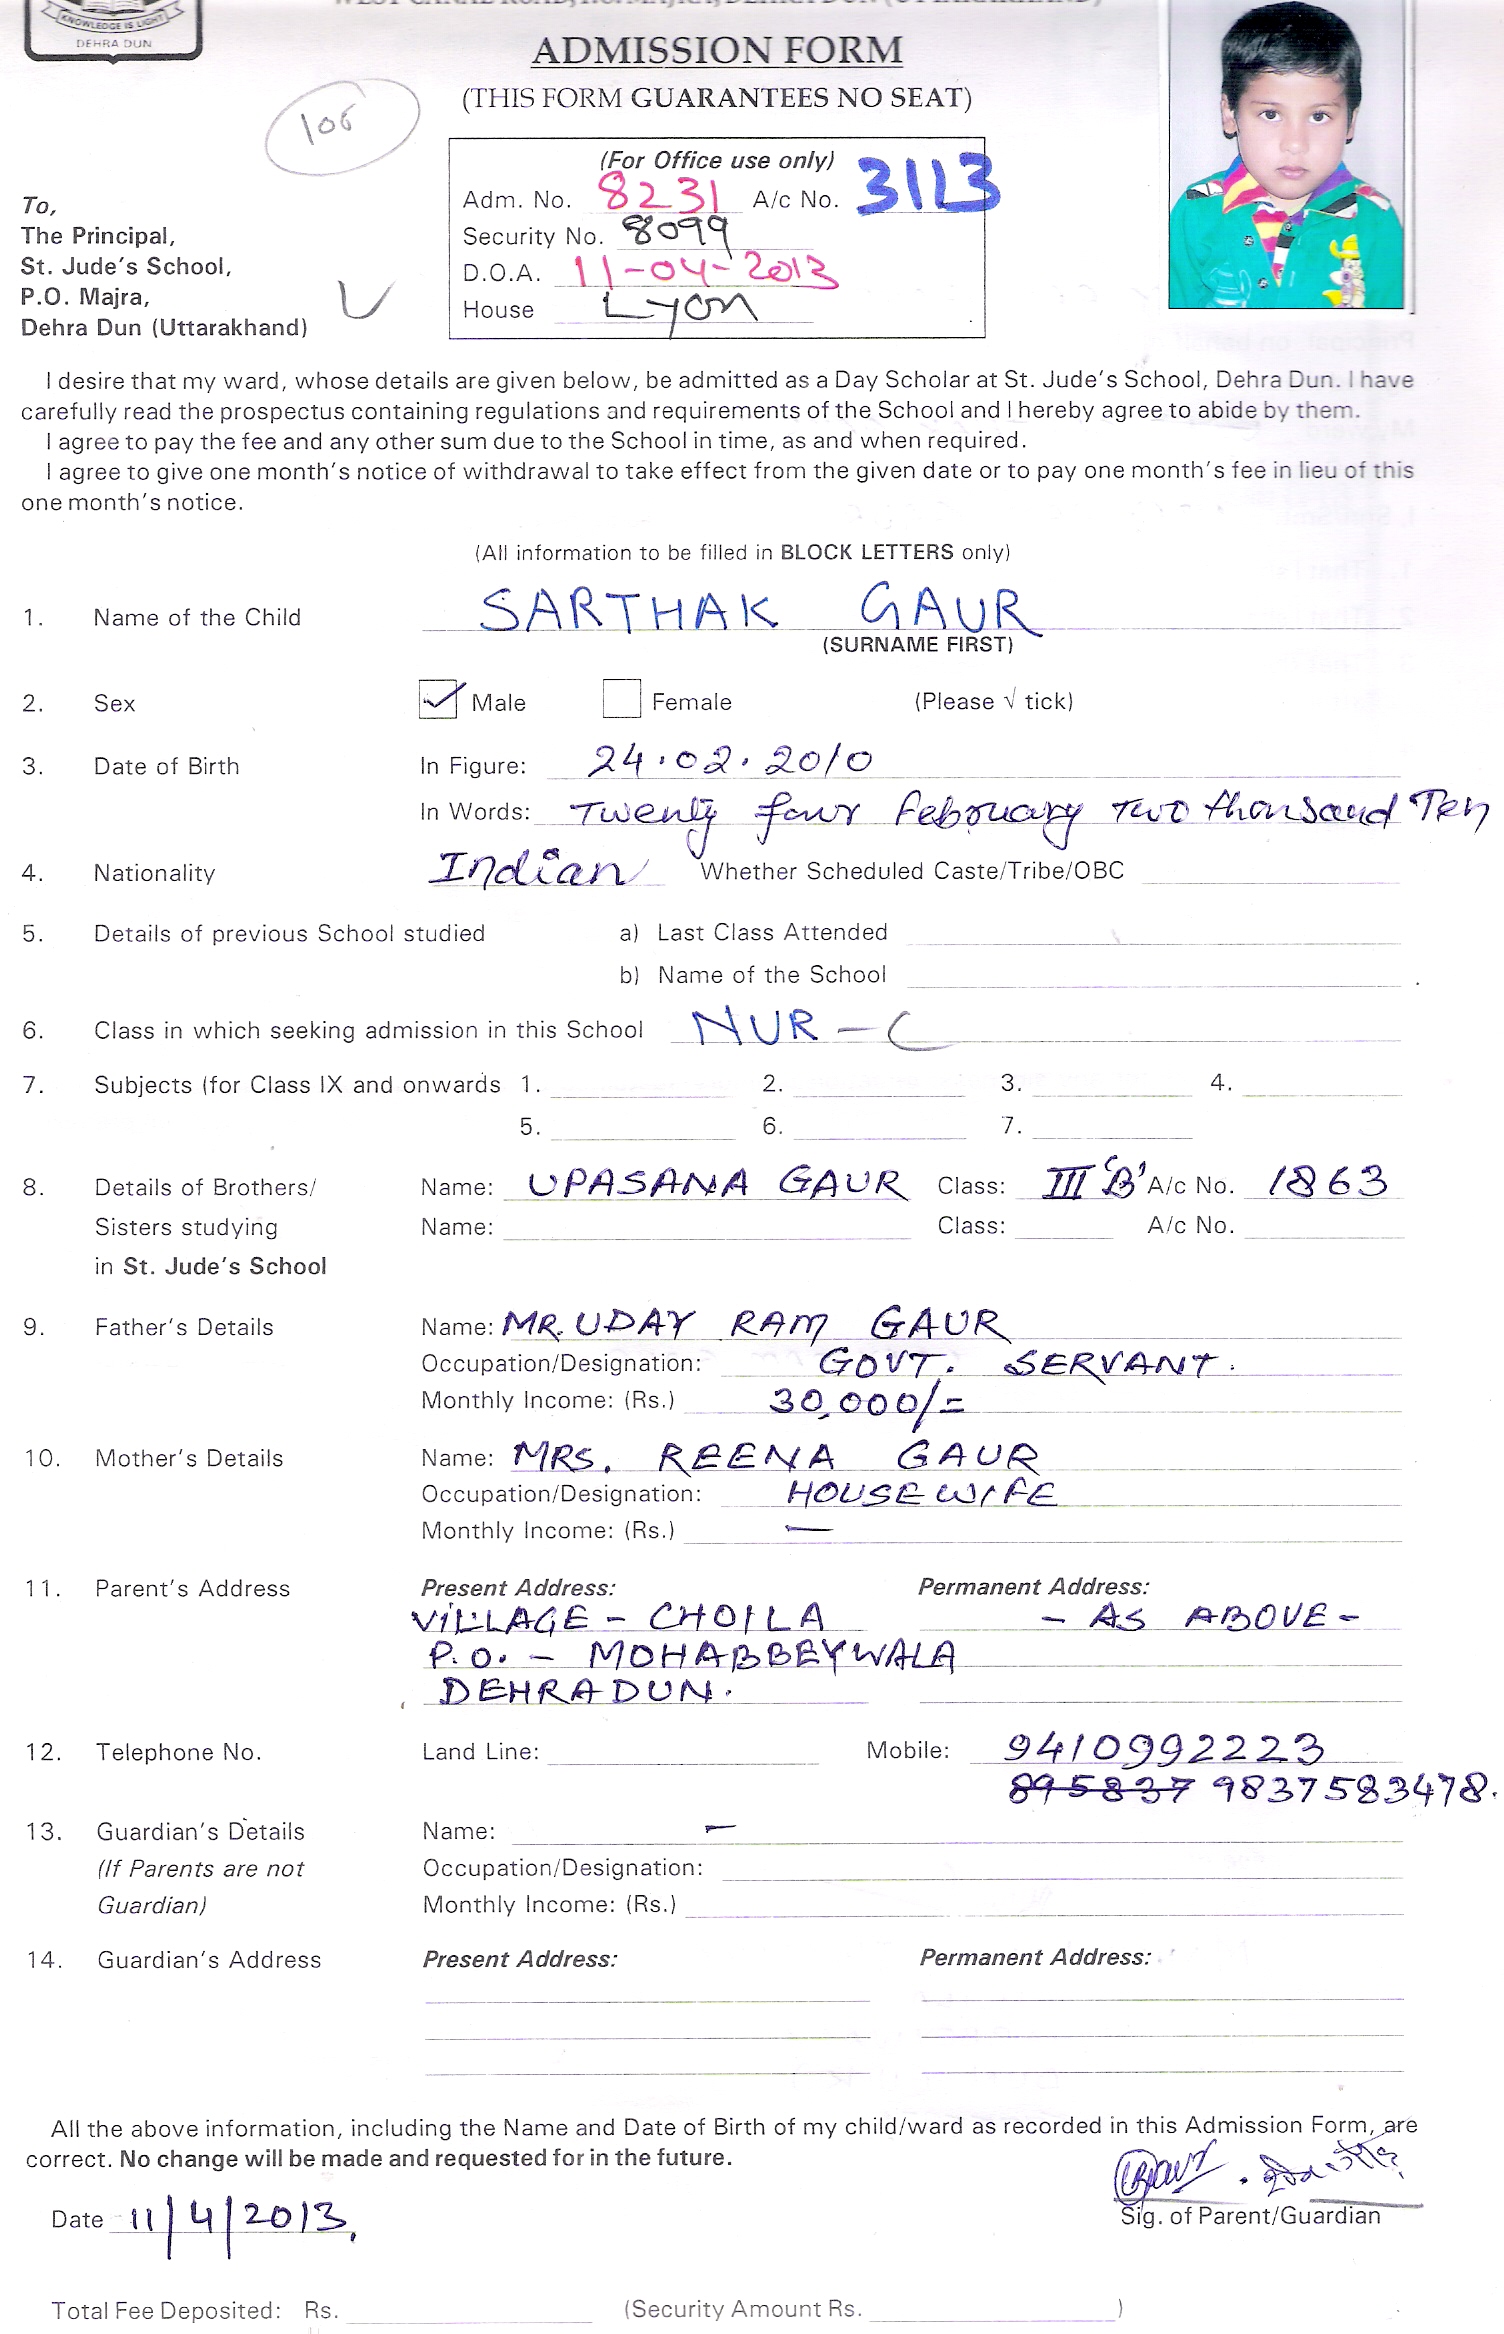 KNOWLEDGE IS LIGHT
DEHRA DUN
ADMISSION FORM
(THIS FORM GUARANTEES NO SEAT)
(For Office use only)
Adm. No. 8231 A/c No. 3113
Security No. 8099
D.O.A. 11-04-2013
House Lyon
To,
The Principal,
St. Jude's School,
P.O. Majra,
Dehra Dun (Uttarakhand)
I desire that my ward, whose details are given below, be admitted as a Day Scholar at St. Jude's School, Dehra Dun. I have
carefully read the prospectus containing regulations and requirements of the School and I hereby agree to abide by them.
I agree to pay the fee and any other sum due to the School in time, as and when required.
I agree to give one month's notice of withdrawal to take effect from the given date or to pay one month's fee in lieu of this
one month's notice.
(All information to be filled in BLOCK LETTERS only)
1. Name of the Child SARTHAK GAUR
(SURNAME FIRST)
2. Sex Male Female (Please √ tick)
3. Date of Birth In Figure: 24.02.2010
In Words: Twenty four February Two thousand Ten
4. Nationality Indian Whether Scheduled Caste/Tribe/OBC
5. Details of previous School studied a) Last Class Attended
b) Name of the School
6. Class in which seeking admission in this School NUR - C
7. Subjects (for Class IX and onwards 1. 2. 3. 4.
5. 6. 7.
8. Details of Brothers/ Name: UPASANA GAUR Class: III 'B' A/c No. 1863
Sisters studying Name: Class: A/c No.
in St. Jude's School
9. Father's Details Name: MR. UDAY RAM GAUR
Occupation/Designation: GOVT. SERVANT.
Monthly Income: (Rs.) 30,000/=
10. Mother's Details Name: MRS. REENA GAUR
Occupation/Designation: HOUSEWIFE
Monthly Income: (Rs.) —
11. Parent's Address Present Address: Permanent Address:
VILLAGE - CHOILA - AS ABOVE -
P.O. - MOHABBEYWALA
DEHRADUN.
12. Telephone No. Land Line: Mobile: 9410992223
895837 9837583478.
13. Guardian's Details Name: —
(If Parents are not Occupation/Designation:
Guardian) Monthly Income: (Rs.)
14. Guardian's Address Present Address: Permanent Address:
All the above information, including the Name and Date of Birth of my child/ward as recorded in this Admission Form, are
correct. No change will be made and requested for in the future.
Date 11/4/2013,
Sig. of Parent/Guardian
Total Fee Deposited: Rs. (Security Amount Rs. )